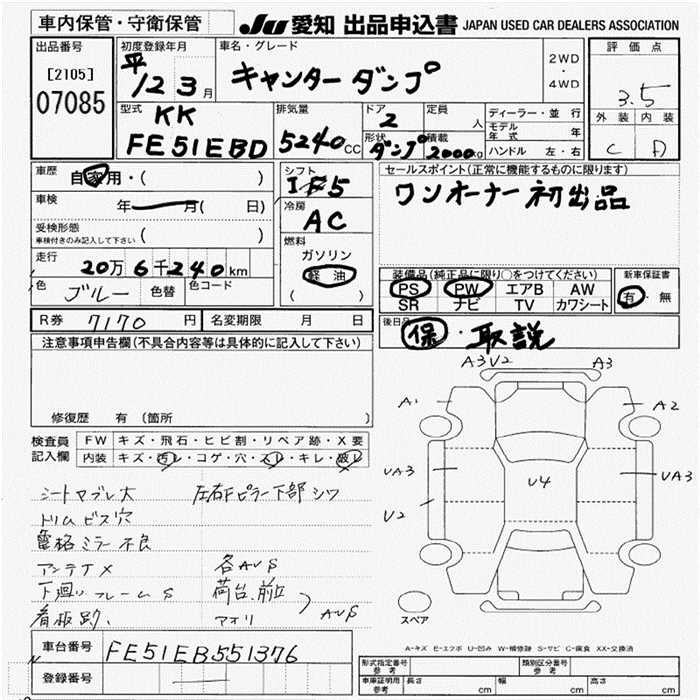 車内保管・守衛保管
JU 愛知 出品申込書 JAPAN USED CAR DEALERS ASSOCIATION
出品番号
[2105]
07085
初度登録年月
平 12 3月
車名・グレード
キャンター ダンプ
2WD
・
4WD
評価点
3.5
外装 内装
C D
型式
KK
FE51EBD
排気量
5240cc
ドア
2
形状
ダンプ
定員
人
積載
2000kg
ディーラー・並行
モデル年式 年
ハンドル 左・右
車歴
自家用・( )
車検
年 月( 日)
受検形態
車検付きのみ記入して下さい ( )
走行
20万6千240km
色
ブルー 色替 色コード
シフト
F5
冷房
AC
燃料
ガソリン
軽油
( )
セールスポイント(正常に機能するものに限ります)
ワンオーナー 初出品
装備品(純正品に限り○をつけてください)
PS PW エアB AW
SR ナビ TV カワシート
新車保証書
有・無
後日品
保・取説
R券 7170円 名変期限 月 日
注意事項申告欄(不具合内容等は具体的に記入して下さい)
修復歴 有 (箇所 )
検査員記入欄
FW キズ・飛石・ヒビ割・リペア跡・X要
内装 キズ・汚レ・コゲ・穴・スレ・キレ・破レ
シートヤブレ大 左右Fピラー下部シワ
トリムビス穴
電格ミラー不良
アンテナX 各AUS
下廻りフレームS 荷台、前立
看板跡. アオリ AUS
A3U2
A3
A1
A2
UA3
UA3
U2
U4
スペア
A-キズ E-エクボ U-凹み W-補修跡 S-サビ C-腐食 XX-交換済
車台番号 FE51EB551376
登録番号
形式指定番号
参考
類別区分番号
参考
車庫証明用
参考
長さ cm
幅 cm
高さ cm